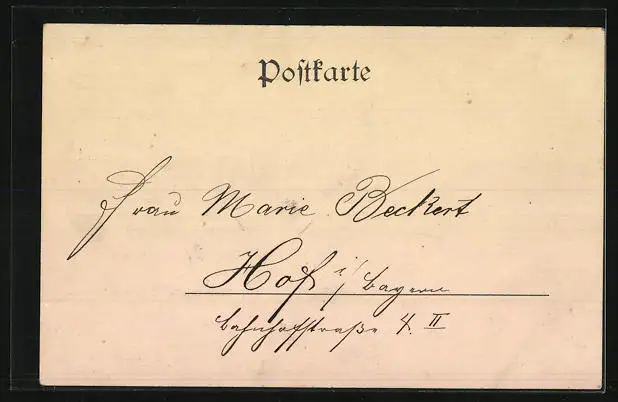 Postkarte
Frau Marie Beckert
Hof i/Bayern
Bahnhofstraße 4. II